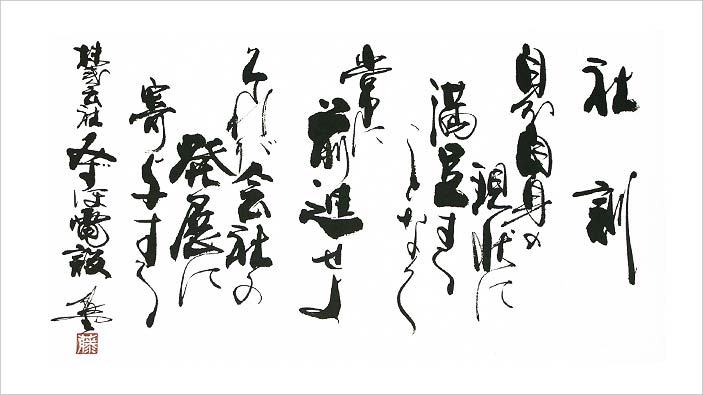 社訓
自分自身の
現状に
満足する
ことなく
常に
前進せよ
それが会社の
発展に
寄与する
株式会社みずほ電設
藤